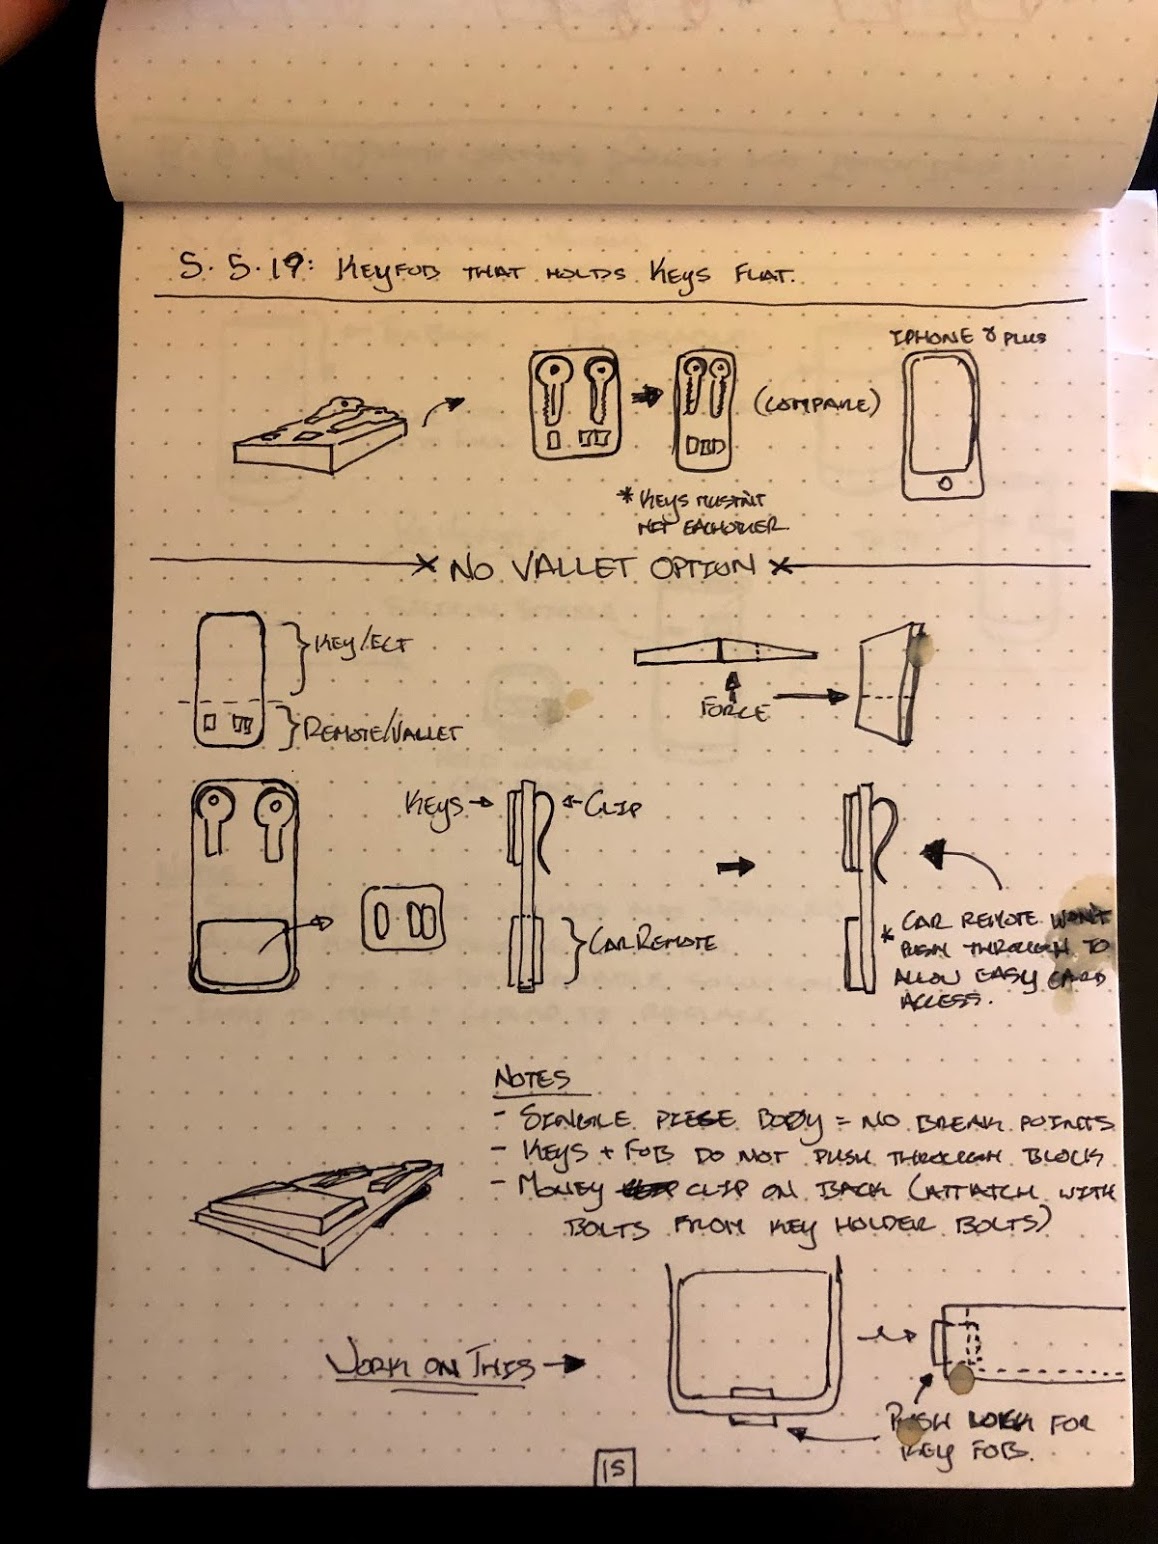 5.5.19: KEYFOB THAT HOLDS KEYS FLAT.
IPHONE 8 PLUS
(COMPARE)
* KEYS MUSTN'T
HIT EACHOTHER
NO VALLET OPTION
KEY/ECT
REMOTE/VALLET
FORCE
KEYS
CLIP
CAR REMOTE
* CAR REMOTE WON'T
PUSH THROUGH TO
ALLOW EASY CARD
ACCESS.
NOTES
- SINGLE PIESE BODY = NO BREAK POINTS
- KEYS + FOB DO NOT PUSH THROUGH BLOCK
- MONEY CLIP ON BACK (ATTATCH WITH
BOLTS FROM KEY HOLDER BOLTS)
WORK ON THIS
PUSH LOCK FOR
KEY FOB.
15